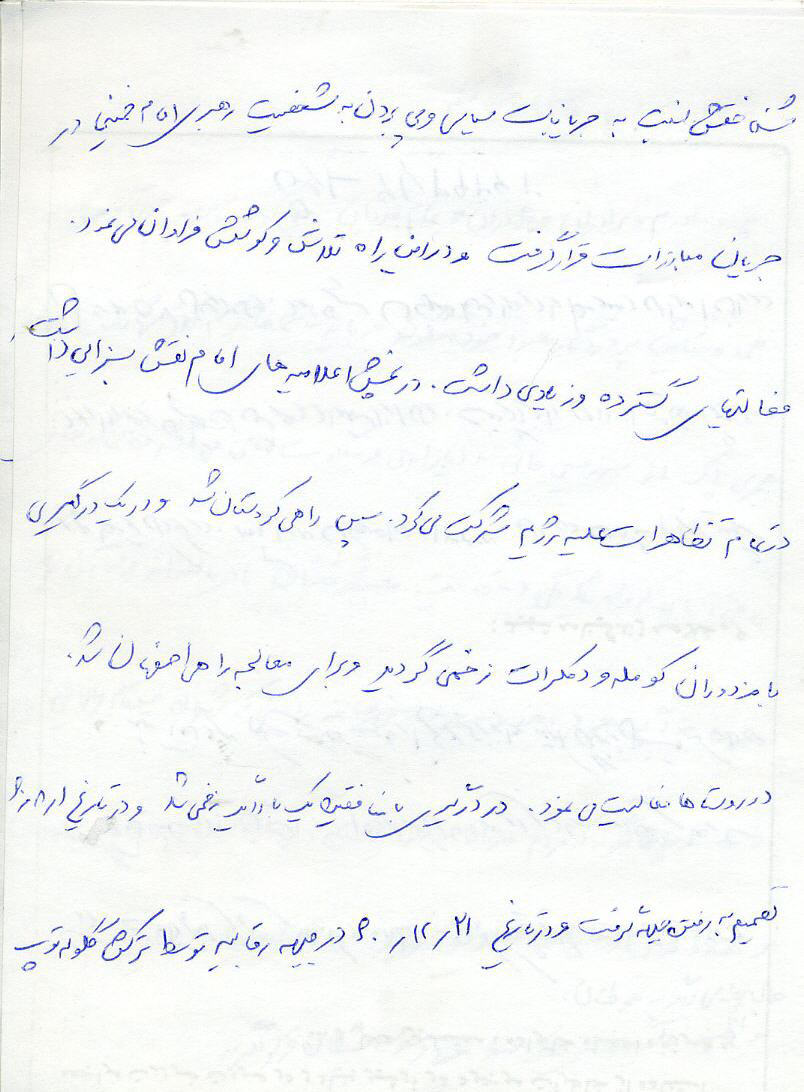 شناختش نسبت به جریانات سیاسی و پی بردن به شخصیت رهبری امام خمینی در
جریان مبارزات قرار گرفت و در این راه تلاش و کوشش فراوان می نمود.
فعالتهای گسترده و زیادی داشت. در پخش اعلامیه های امام نقش بسزایی داشت
در تمام تظاهرات علیه رژیم شرکت می کرد. سپس راهی کردستان شد و در یک درگیری
با مزدوران کومله و دمکرات زخمی گردید و برای معالجه راهی اصفهان شد.
در روستاها فعالیت می نمود. در درگیری با منافقین یک بار دیگر زخمی شد و در تاریخ
تصمیم به رفتن جبهه گرفت و در تاریخ ۲۱ ر ۱۲ ر ۶۰ در جبهه رقابیه توسط ترکش گلوله توپ